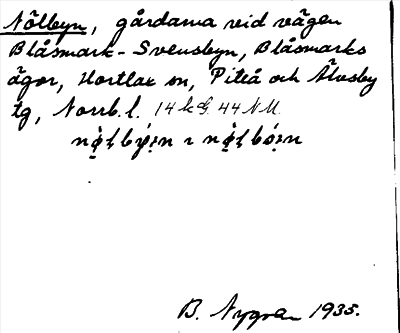 Nölbyn, gårdarna vid vägen
Blåsmark-Svensbyn, Blåsmarks
ägor, Hortlax sn, Piteå och Älvsby
tg, Norrb. l. 14 k G. 44 NM.
B. Nygren 1935.